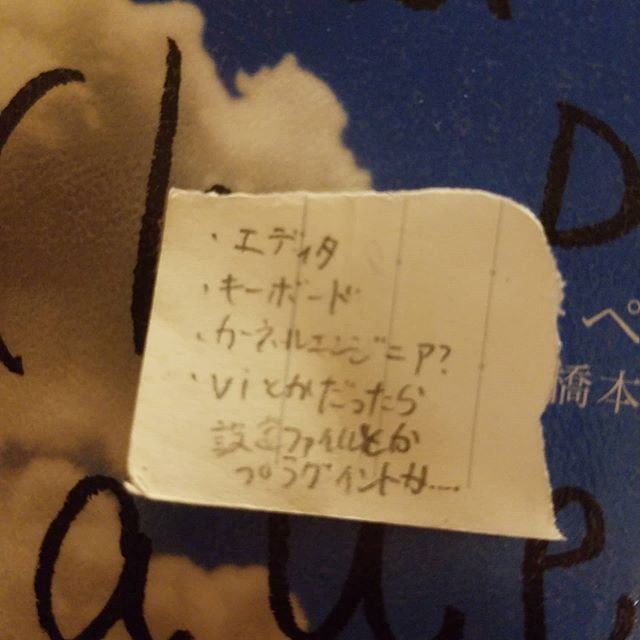 ・エディタ
・キーボード
・カーネルエンジニア?
・viとかだったら
設定ファイルとか
プラグイントか....
D
ペ
橋本
a u e